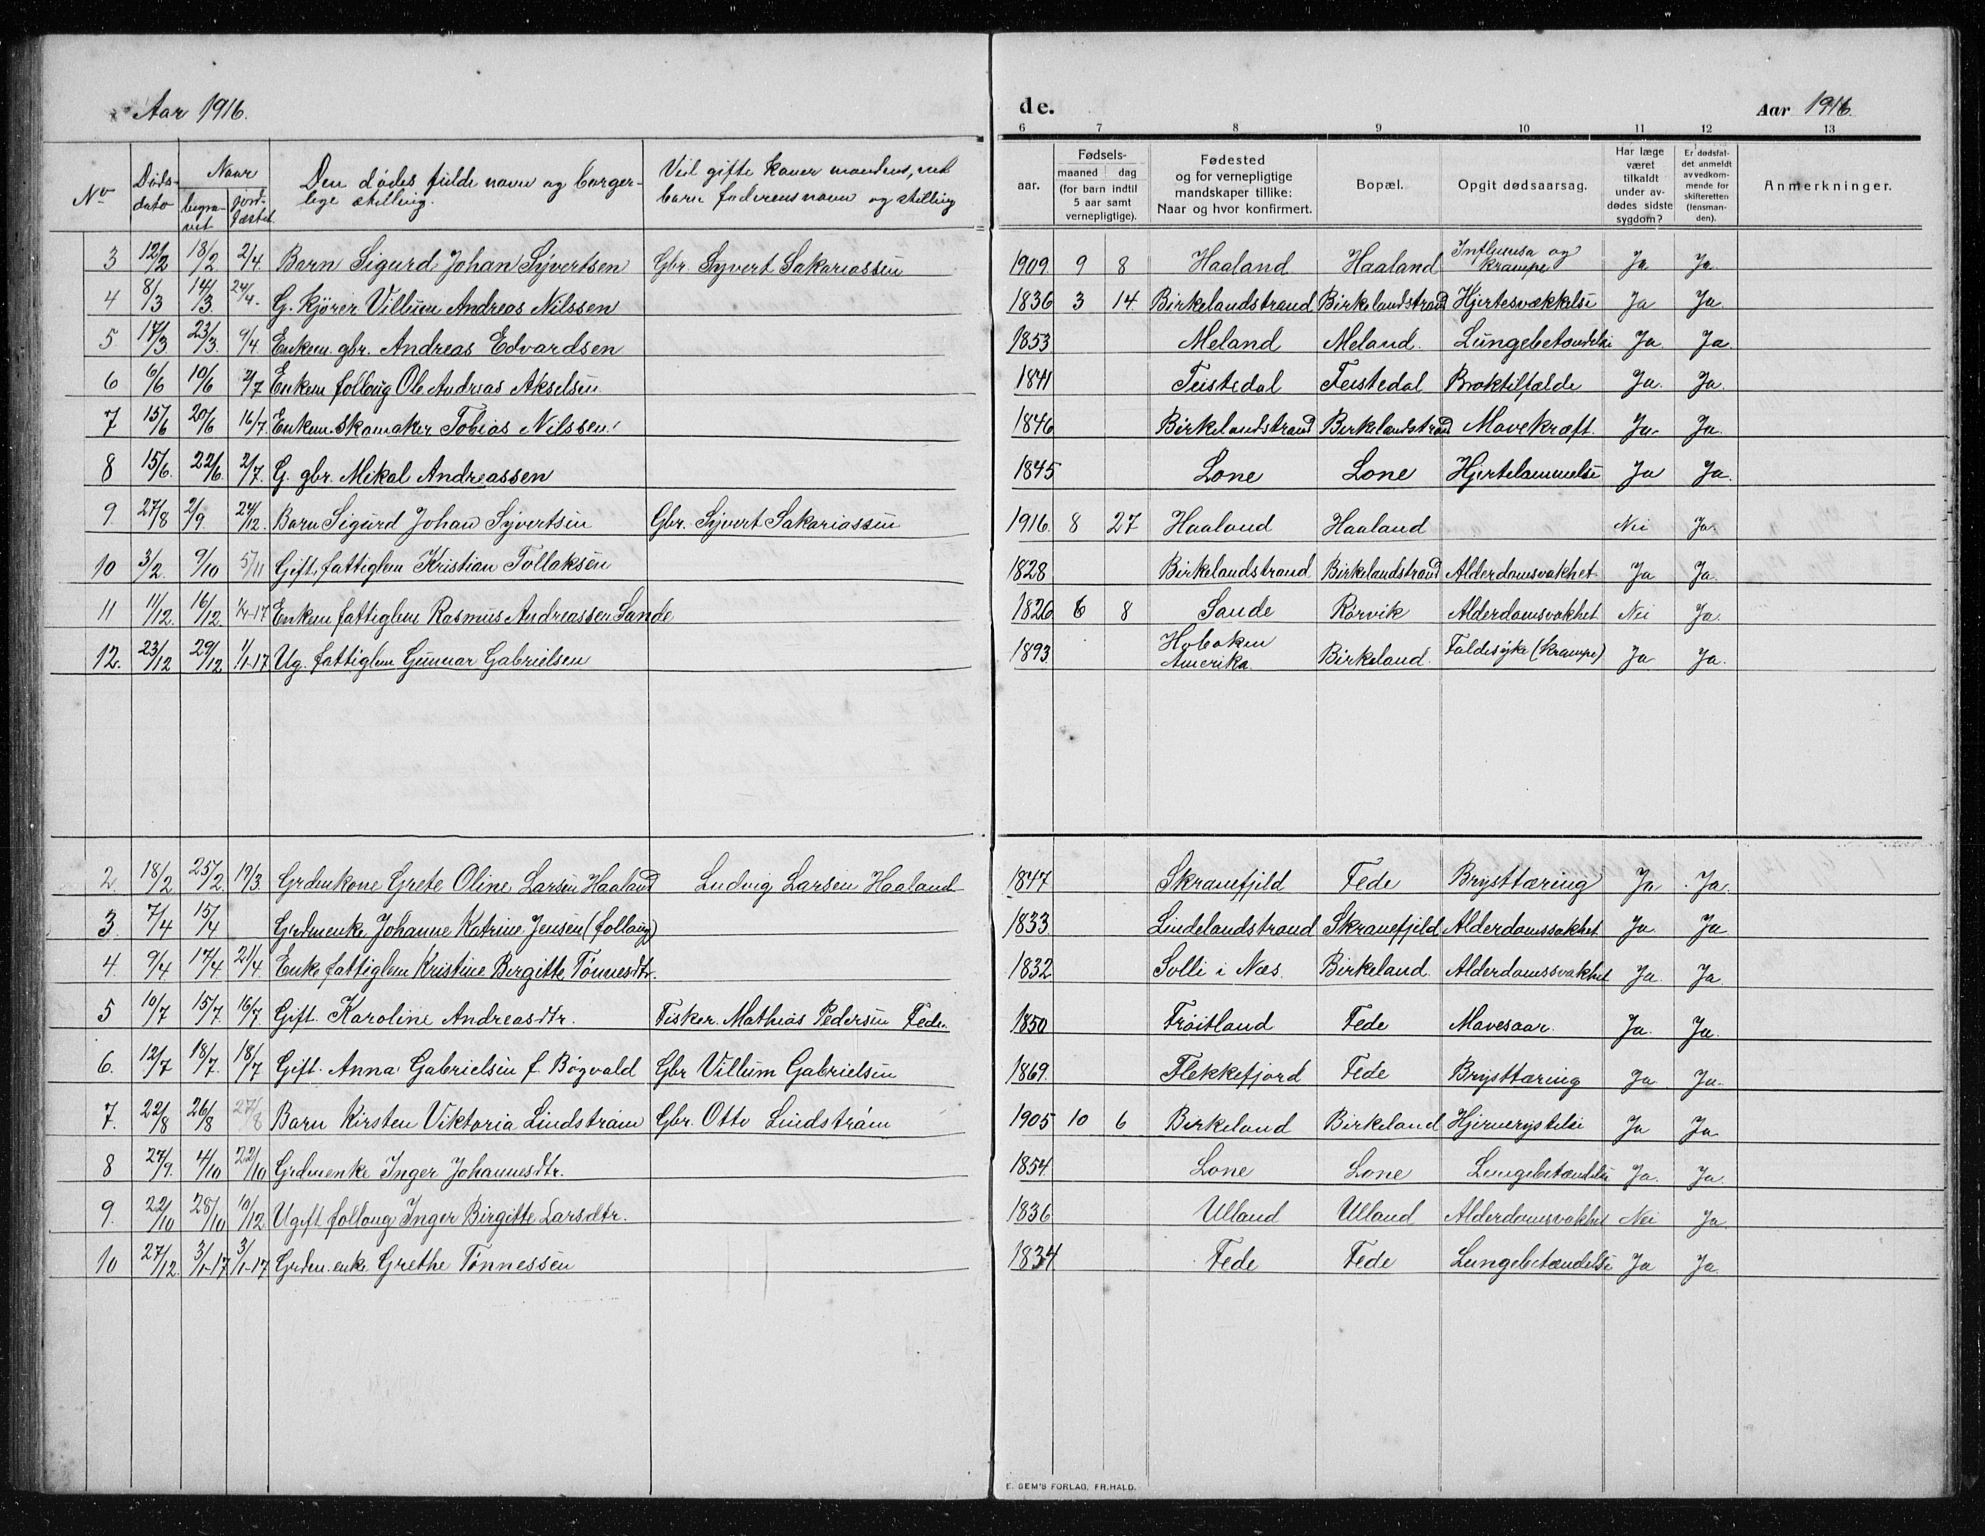 Aar 1916.
de.
Aar 1916.
6 7 8 9 10 11 12 13
No Døds-dato Naar begra-vet jord-fæstet Den dødes fulde navn og borger-lige stilling. Ved gifte koner mandens, ved barn faderens navn og stilling
aar. Fødsels- maaned dag (for barn indtil 5 aar samt vernepligtige). Fødested og for vernepligtige mandskaper tillike: Naar og hvor konfirmert. Bopæl. Opgit dødsaarsag. Har læge været tilkaldt under av-dødes sidste sygdom? Er dødsfal-det anmeldt av vedkom-mende for skifteretten (lensman-den). Anmerkninger.
3 12/2 18/2 2/4. Barn Sigurd Johan Syvertsen Gbr. Syvert Sakariassen 1909 9 8 Haaland Haaland Influensa og krampe Ja Ja.
4 8/3 14/3. 24/4. G. Kjører Villum Andreas Nilssen 1836 3 14. Birkelandstrand Birkelandstrand Hjertesvækkelse Ja Ja.
5 17/3 23/3. 9/4 Enkem. gbr. Andreas Edvardsen 1853 Meland Meland. Lungebetændelse Ja. Ja
6 6/6 10/6 2/7 Enkem folloug Ole Andreas Akselsen 1841 Feistedal Feistedal Broktilfælde Ja. Ja.
7 15/6 20/6 16/7. Enkem. skomaker Tobias Nilssen. 1846 Birkelandstrand Birkelandstrand Mavekræft. Ja. Ja.
8 15/6. 22/6. 2/7. G. gbr. Mikal Andreassen 1845 Lone Lone Hjertelammelse Ja Ja.
9. 27/8 2/9 24/12. Barn Sigurd Johan Syvertsen Gbr. Syvert Sakariassen 1916. 8 27 Haaland Haaland Nei Ja.
10 3/2. 9/10 5/11 Gift. fattiglem Kristian Tollaksen 1828 Birkelandstrand Birkelandstrand Alderdomsvakhet Ja Ja.
11 11/12. 16/12. 1/4-17 Enkem fattiglem Rasmus Andreassen Sande 1826 6 8 Sande Rørvik Alderdomsvakhet Nei Ja.
12. 23/12 29/12 1/1-17 Ug. fattiglem Gunnar Gabrielsen 1893 Hoboken Amerika Birkeland. Faldesyke (Krampe) Ja Ja.
2. 18/2 25/2. 19/3. Grdmkone Grete Oline Larsen Haaland Ludvig Larsen Haaland 1847 Skranefjeld Fede Brysttæring Ja Ja.
3. 7/4 15/4 Grdmenke Johanne Katrine Jensen (folloug) 1833 Lindelandstrand Skranefjeld Alderdomssvakhet Ja. Ja
4. 9/4 17/4 21/4 Enke fattiglem Kristine Bergitte Tønnesdtr. 1832 Solli i Næs. Birkeland. Alderdomssvakhet Ja. Ja.
5 10/7 15/7. 16/7. Gift. Karoline Andreasdtr. Fisker. Mathias Pedersen Fede. 1850 Frøitland Fede Mavesaar. Ja. Ja.
6. 12/7 18/7. 18/7 Gift. Anna Gabrielsen f. Bøgvald Gbr Villum Gabrielsen 1869. Flekkefjord Fede Brysttæring Ja. Ja.
7. 22/8 26/8 27/8 Barn Kirsten Viktoria Lindstrøm Gbr. Otto Lindstrøm 1905 10 6 Birkeland Birkeland Hjernerystelse Ja Ja.
8 27/9. 4/10 22/10 Grdmenke Inger Johannesdtr. 1854. Lone Lone Lungebetændelse Ja. Ja.
9. 22/10 28/10 10/12. Ugift folloug Inger Birgitte Larsdtr. 1836 Ulland Ulland Alderdomsvakhet Nei Ja
10 27/12. 3/1-17 3/1-17 Grdm. enke Grethe Tønnessen 1834 Fede Fede Lungebetændelse Ja Ja.
E. SEM'S FORLAG, FR.HALD.